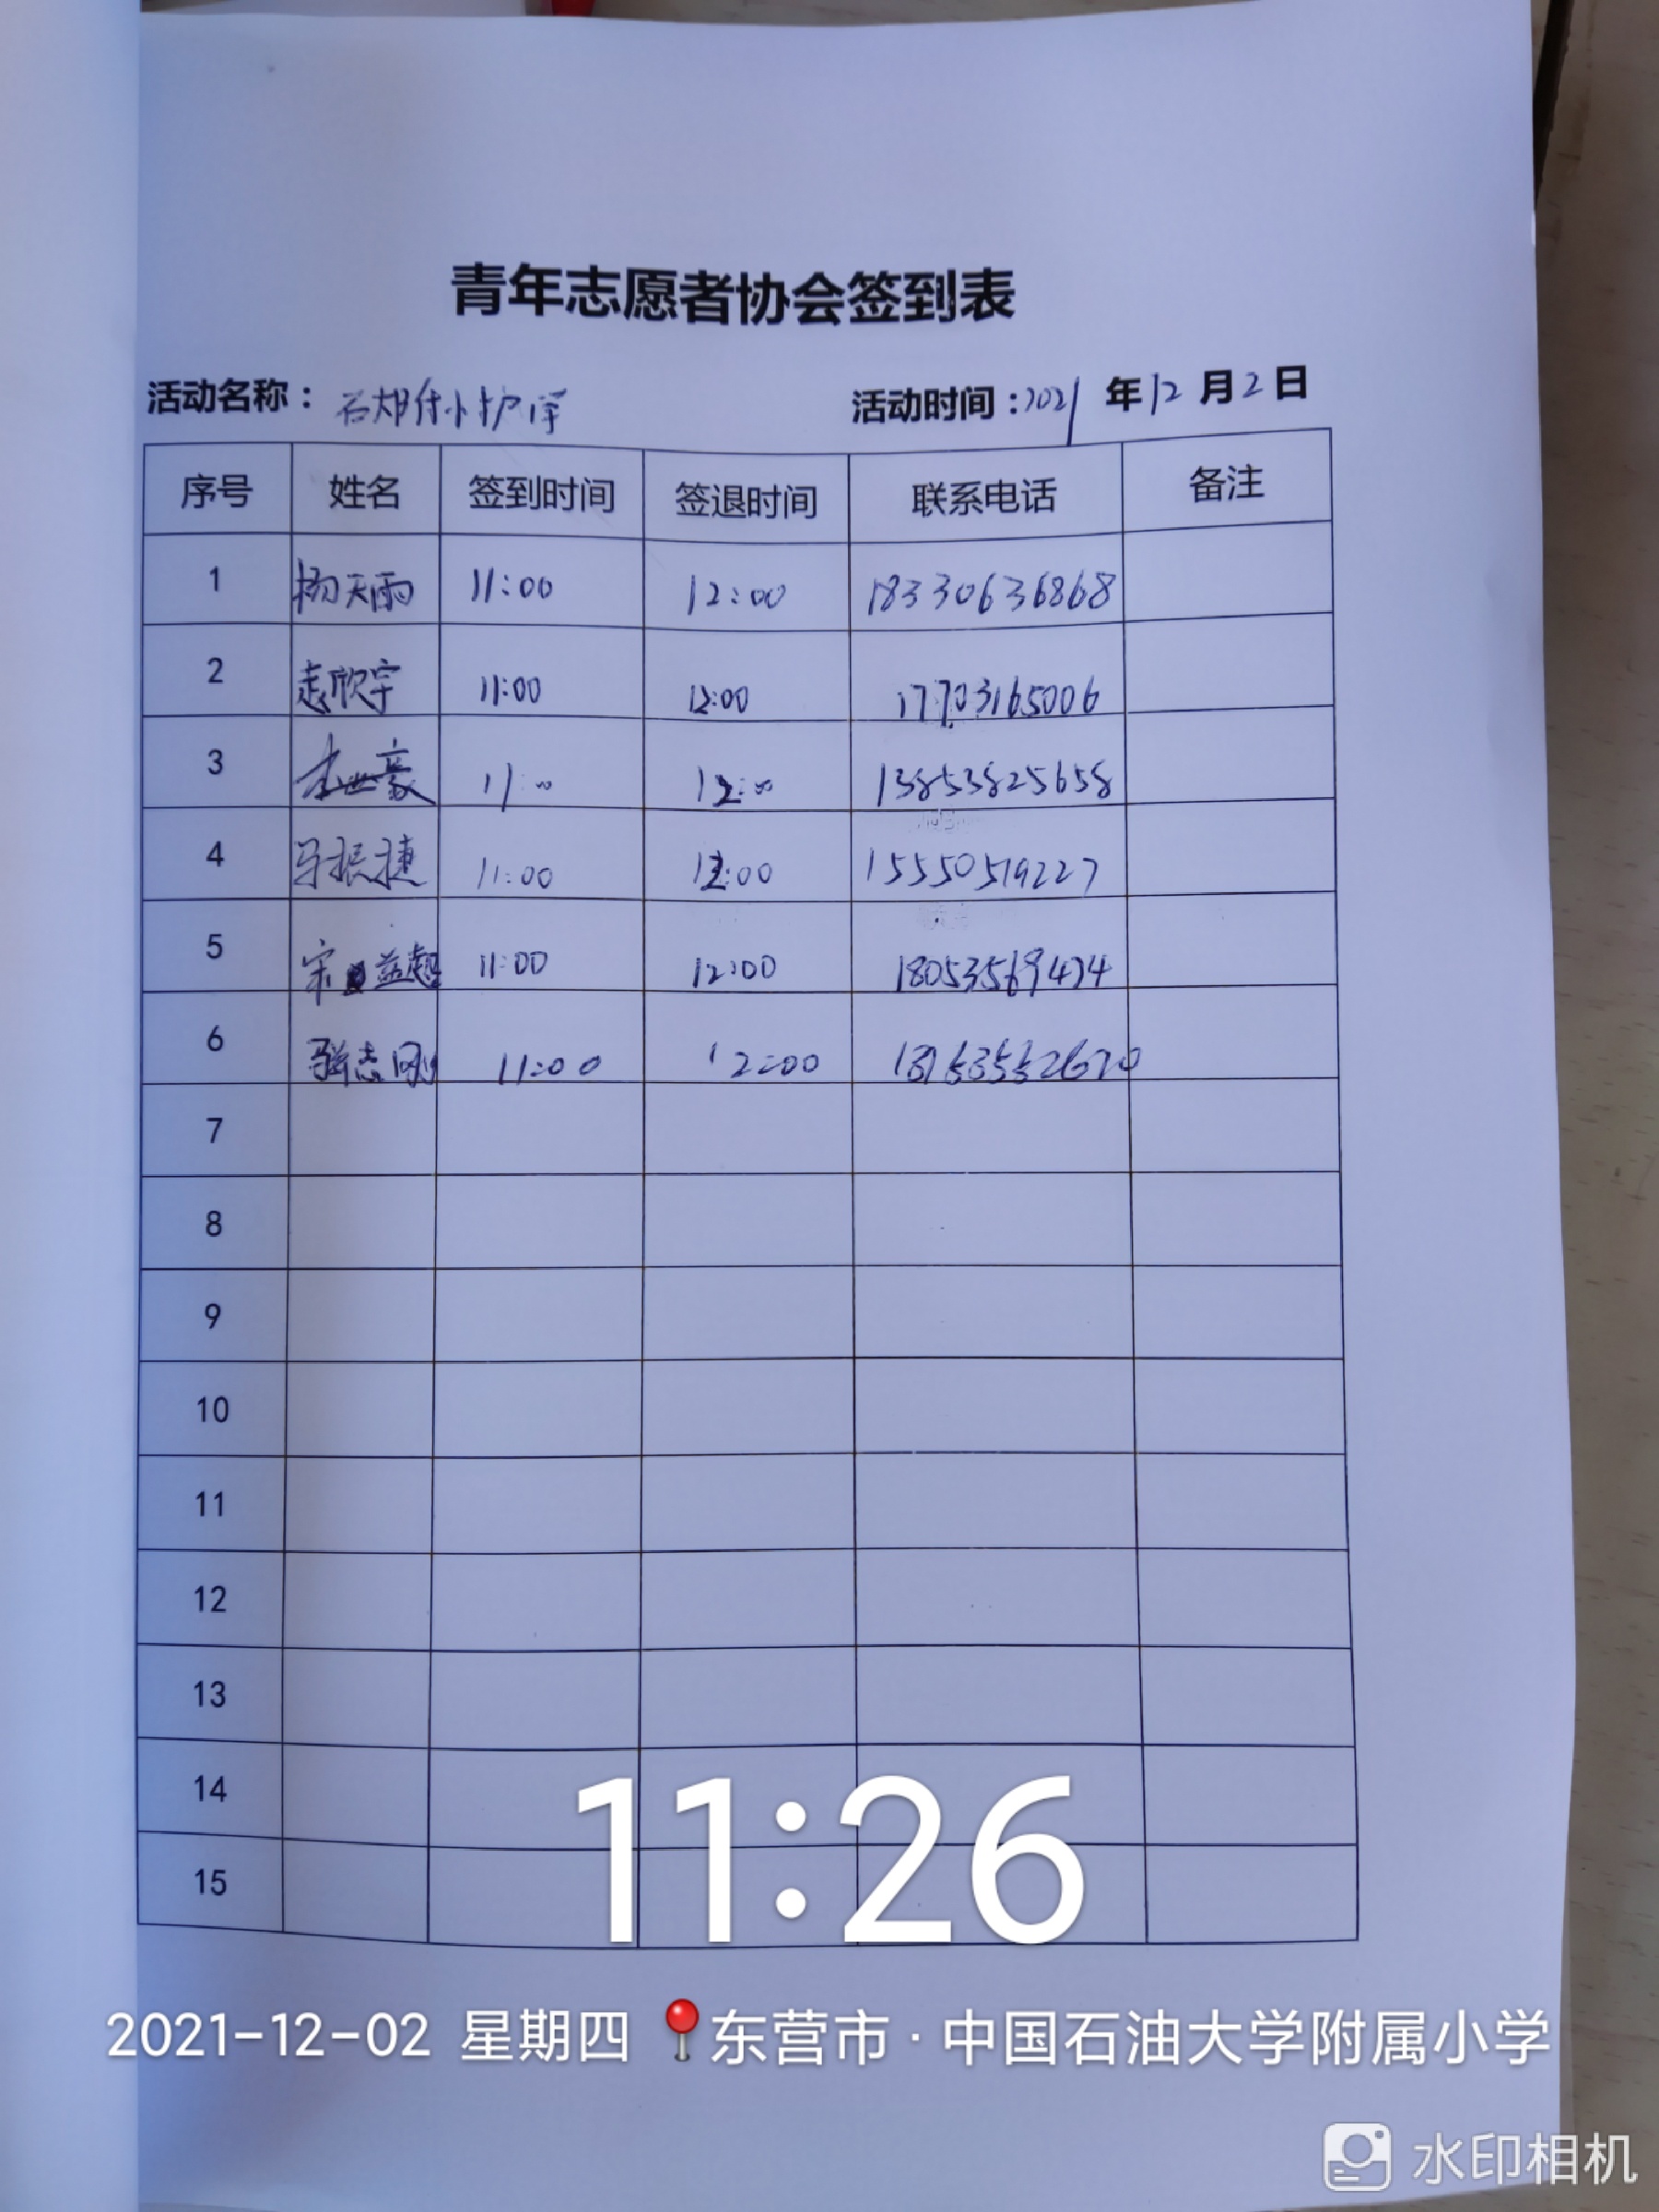 青年志愿者协会签到表
活动名称： 附小护学 活动时间：2021年12月2日
序号 姓名 签到时间 签退时间 联系电话 备注
1 杨天雨 11:00 12:00 18330636868
2 欣宇 11:00 12:00 17703165006
3 李世豪 11:00 12:00 13853825658
4 马振捷 11:00 12:00 15550519227
5 宋益超 11:00 12:00 18053569474
6 志刚 11:00 12:00
7
8
9
10
11
12
13
14
15
11:26
2021-12-02 星期四 东营市·中国石油大学附属小学
水印相机